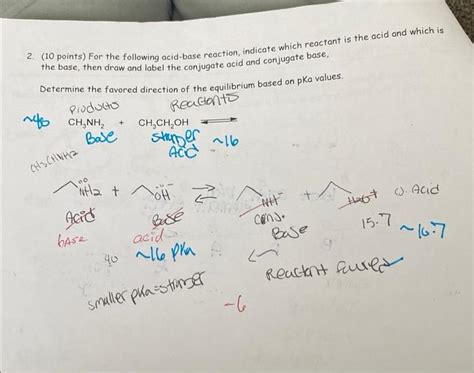 2. (10 points) For the following acid-base reaction, indicate which reactant is the acid and which is
the base, then draw and label the conjugate acid and conjugate base,
Determine the favored direction of the equilibrium based on pKa values.
Products Reactants
~40 CH3NH2 + CH3CH2OH ⇌
Base stronger Acid ~16
CH3CH2NH2
NH2 + OH ⇌ NH + H2O+ C. Acid
Acid Base conj. Base 15.7 ~16.7
base acid
40 ~16 pKa ←
Reactant Favored
smaller pKa = stronger
-6